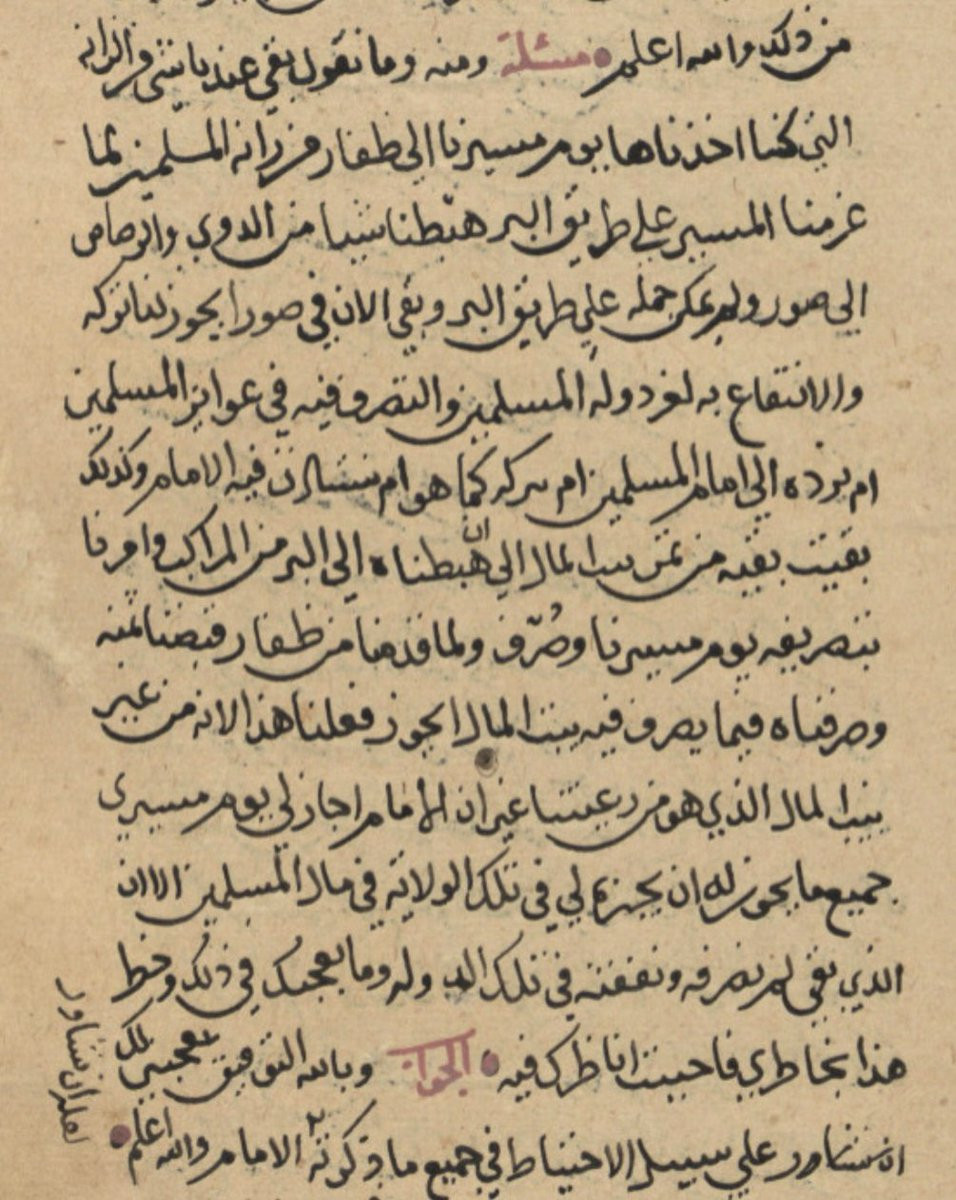 من ذلك والله اعلم مسئلة ومنه وما تقول بقي عندنا شي من الزانه
التي كنا اخذناها يوم مسيرنا الى ظفار من زانه المسلمين لما
عزمنا المسير على طريق البر هبطنا شيا من الدوى والرصاص
الى صور ولم يمكن حمله علي طريق البر وبقي الان في صور ايجوز لنا تركه
والانتفاع به لغو دولة المسلمين والتصرف فيه في عوايز المسلمين
ام نرده الي امام المسلمين ام نتركه كما هو ام نستاذن فيه الامام وكذلك
بقيت بقيه من ثمن بيت المال الي ان هبطناه الي البر من المراكب وامرنا
بتصريفه يوم مسيرنا وصُرّف ولما قدمنا من ظفار قبضنا ثمنه
وصرفناه فيما يصرف فيه بيت المال ايجوز فعلنا هذا لانه من غير
بيت المال الذي هو من رعيتنا غير ان الامام اجاز لي يوم مسيري
جميع ما يجوز له ان يجيزه لي في تلك الولاية في مال المسلمين الا ان
الذي بقي لم نصرفه ونفقته في تلك الدوله وما يعجبك في ذلك وخط
هذا بخاطري فاحببت اناظرك فيه الجواب وبالله التوفيق يعجبني لك
ان تشاور علي سبيل الاحتياط في جميع ما ذكرته الامام والله اعلم
لعله ان تشاور